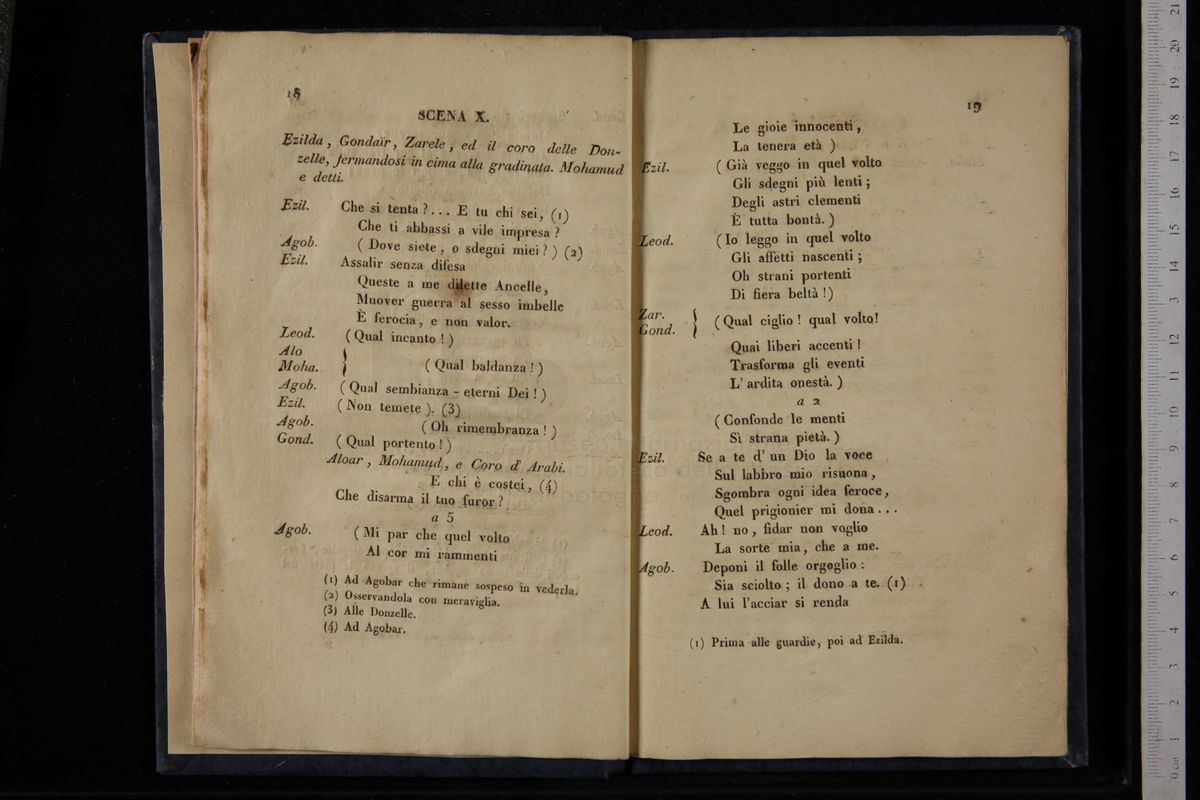 18
SCENA X.
Ezilda, Gondaïr, Zarele, ed il coro delle Don-
zelle, fermandosi in cima alla gradinata. Mohamud
e detti.
Ezil. Che si tenta?... E tu chi sei, (1)
Che ti abbassi a vile impresa?
Agob. (Dove siete, o sdegni miei?) (2)
Ezil. Assalir senza difesa
Queste a me dilette Ancelle,
Muover guerra al sesso imbelle
È ferocia, e non valor.
Leod. (Qual incanto!)
Alo
Moha. } (Qual baldanza!)
Agob. (Qual sembianza - eterni Dei!)
Ezil. (Non temete). (3)
Agob. (Oh rimembranza!)
Gond. (Qual portento!)
Aloar, Mohamud, e Coro d' Arabi.
E chi è costei, (4)
Che disarma il tuo furor?
a 5
Agob. (Mi par che quel volto
Al cor mi rammenti
(1) Ad Agobar che rimane sospeso in vederla.
(2) Osservandola con meraviglia.
(3) Alle Donzelle.
(4) Ad Agobar.
19
Le gioie innocenti,
La tenera età )
Ezil. (Già veggo in quel volto
Gli sdegni più lenti;
Degli astri clementi
È tutta bontà.)
Leod. (Io leggo in quel volto
Gli affetti nascenti;
Oh strani portenti
Di fiera beltà!)
Zar.
Gond. } (Qual ciglio! qual volto!
Quai liberi accenti!
Trasforma gli eventi
L' ardita onestà.)
a 2
(Confonde le menti
Sì strana pietà.)
Ezil. Se a te d' un Dio la voce
Sul labbro mio risuona,
Sgombra ogni idea feroce,
Quel prigionier mi dona...
Leod. Ah! no, fidar non voglio
La sorte mia, che a me.
Agob. Deponi il folle orgoglio:
Sia sciolto; il dono a te. (1)
A lui l'acciar si renda
(1) Prima alle guardie, poi ad Ezilda.
0 cm 1 2 3 4 5 6 7 8 9 10 11 12 13 14 15 16 17 18 19 20 21